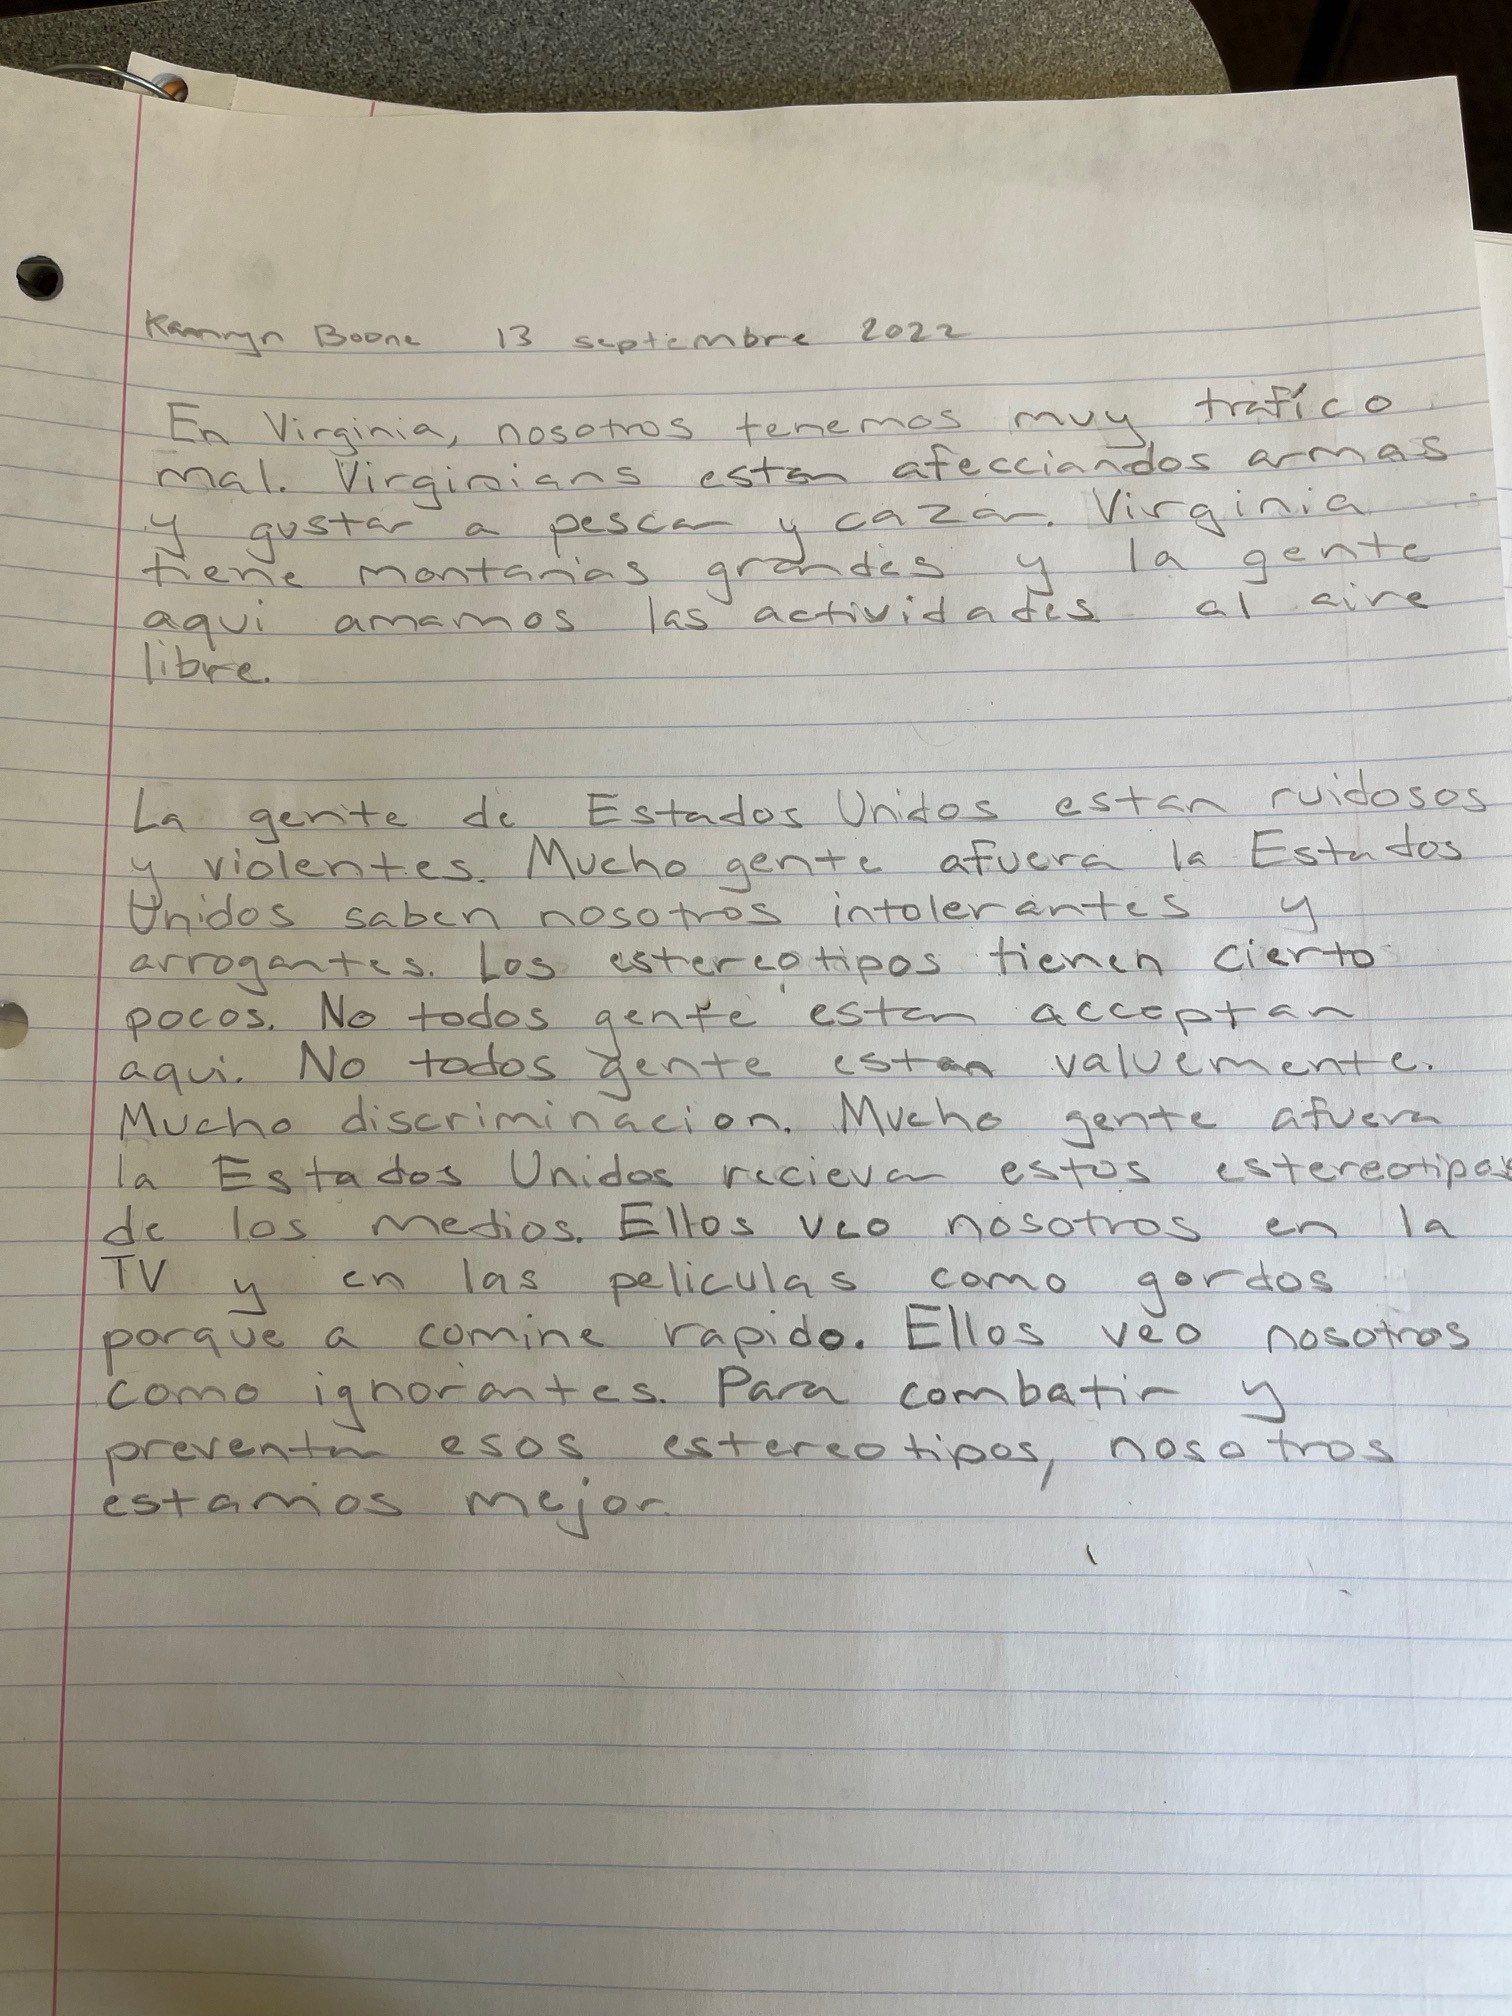 Kamryn Boone 13 septiembre 2022
En Virginia, nosotros tenemos muy trafíco
mal. Virginians estan afecciandos armas
y gustar a pescar y cazar. Virginia
tiene montanias grandes y la gente
aqui amamos las actividades al aire
libre.
La gente de Estados Unidos estan ruidosos
y violentes. Mucho gente afuera la Estados
Unidos saben nosotros intolerantes y
arrogantes. Los estereotipos tienen cierto
pocos. No todos gente estan acceptan
aqui. No todos gente estan valuemente.
Mucho discriminacion. Mucho gente afuera
la Estados Unidos recievar estos estereotipos
de los medios. Ellos veo nosotros en la
TV y en las peliculas como gordos
porque a comine rapido. Ellos veo nosotros
como ignorantes. Para combatir y
preventar esos estereotipos, nosotros
estamos mejor.